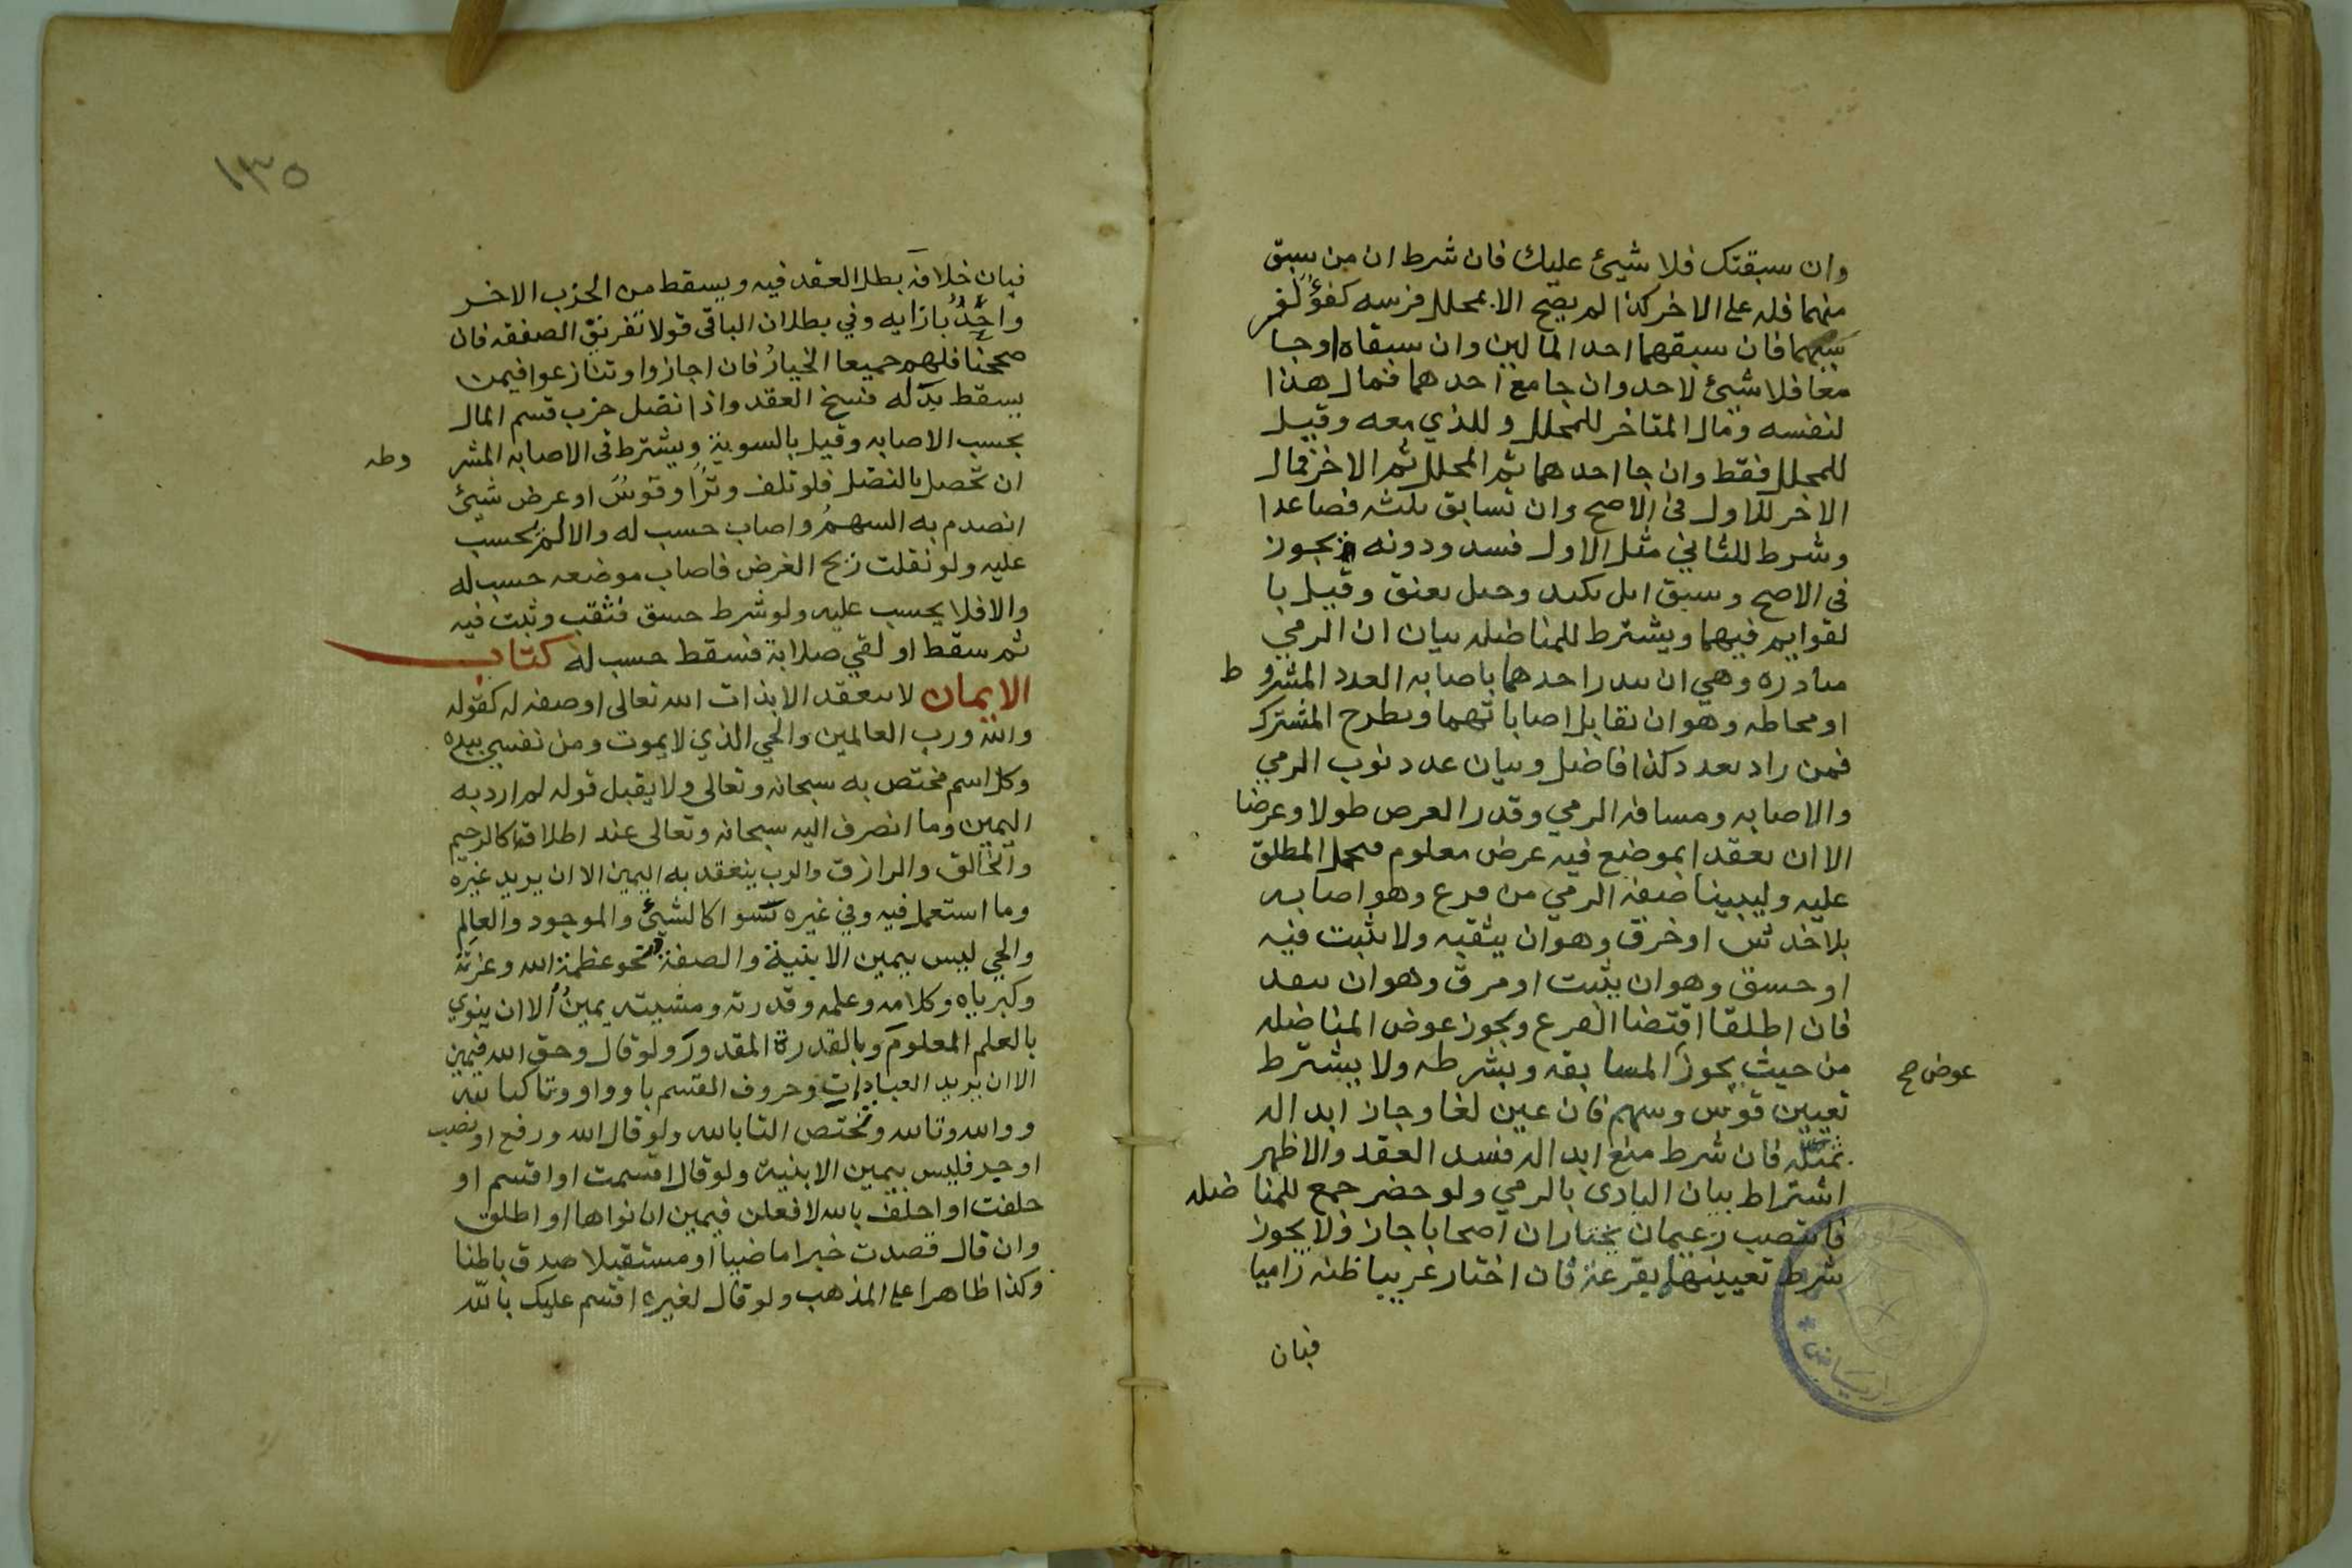 وان سبقتك فلا شيئ عليك فان شرط ان من سبق
منهما فله على الاخر كذا لم يصح الا بمحلل فرسه كفؤ لفر
سيهما فان سبقهما احد المالين وان سبقاه وجا
معا فلا شيئ لاحد وان جا مع احدهما فمال هذا
لنفسه ومال المتاخر للمحلل وللذي معه وقيل
للمحلل فقط وان جا احدهما ثم المحلل ثم الاخر فمال
الاخر للاول في الاصح وان تسابق ثلثه فصاعدا
وشرط للثاني مثل الاول فسد ودونه يجوز
في الاصح وسبق ابل بكتد وخيل بعنق وقيل با
لقوايم فيهما ويشترط للمناضله بيان ان الرمي
مبادره وهي ان يبدر احدهما باصابه العدد المشرو ط
او محاطه وهو ان تقابل اصاباتهما ويطرح المشترك
فمن زاد بعدد كذا فناضل وبيان عدد نوب الرمي
والاصابه ومسافه الرمي وقدر الغرض طولا وعرضا
الا ان يعقدا بموضع فيه غرض معلوم فيحمل المطلق
عليه وليبينا صفه الرمي من قرع وهو اصابه
بلا خدش او خرق وهو ان يثقبه ولا يثبت فيه
او خسق وهو ان يثبت او مرق وهو ان ينفد
فان اطلقا اقتضا القرع ويجوز عوض المناضله
من حيث يجوز المسابقه وبشرطه ولا يشترط
عوض صح
تعيين قوس وسهم فان عين لغا وجاز ابداله
بمثله فان شرط منع ابداله فسد العقد والاظهر
اشتراط بيان البادى بالرمي ولو حضر جمع للمنا ضله
فانتصب زعيمان يختاران اصحابا جاز ولا يجوز
شرط تعيينهما بقرعة فان اختار غريبا ظنه راميا
فبان
الرياض
١٣٥
فبان خلافه بطل العقد فيه ويسقط من الحزب الاخر
واحد بازايه وفي بطلان الباقي قولا تفريق الصفقه فان
صححنا فلهم جميعا الخيار فان اجازوا وتنازعوا فيمن
يسقط بدله فسخ العقد واذا نضل حزب قسم المال
بحسب الاصابه وقيل بالسوية ويشترط في الاصابه المشر وطه
ان تحصل بالنصل فلو تلف وترا وقوس او عرض شيئ
انصدم به السهم واصاب حسب له والا لم يحسب
عليه ولو نقلت ريح الغرض فاصاب موضعه حسب له
والا فلا يحسب عليه ولو شرط خسق فثقب وثبت فيه
ثم سقط او لقي صلابة فسقط حسب له كتاب
الايمان لا ينعقد الا بذات الله تعالى او صفه له كقوله
والله ورب العالمين والحي الذي لا يموت ومن نفسي بيده
وكل اسم مختص به سبحانه وتعالى ولا يقبل قوله لم ارد به
اليمين وما انصرف اليه سبحانه وتعالى عند اطلاقه كالرحيم
والخالق والرازق والرب ينعقد به اليمين الا ان يريد غيره
وما استعمل فيه وفي غيره سوا كالشيئ والموجود والعالم
والحي ليس بيمين الا بنية والصفة نحو عظمة الله وعزته
وكبرياه وكلامه وعلمه وقدرته ومشيته يمين الا ان ينوي
بالعلم المعلوم وبالقدرة المقدور ولو قال وحق الله فيمين
الا ان يريد العبادات وحروف القسم با وواو وتا كبا لله
ووالله وتالله وتختص التا بالله ولو قال الله ورفع او نصب
او جر فليس بيمين الا بنية ولو قال اقسمت او اقسم او
حلفت او احلف بالله لافعلن فيمين ان نواها او اطلق
وان قال قصدت خبرا ماضيا او مستقبلا صدق باطنا
وكذا ظاهرا على المذهب ولو قال لغيره اقسم عليك بالله